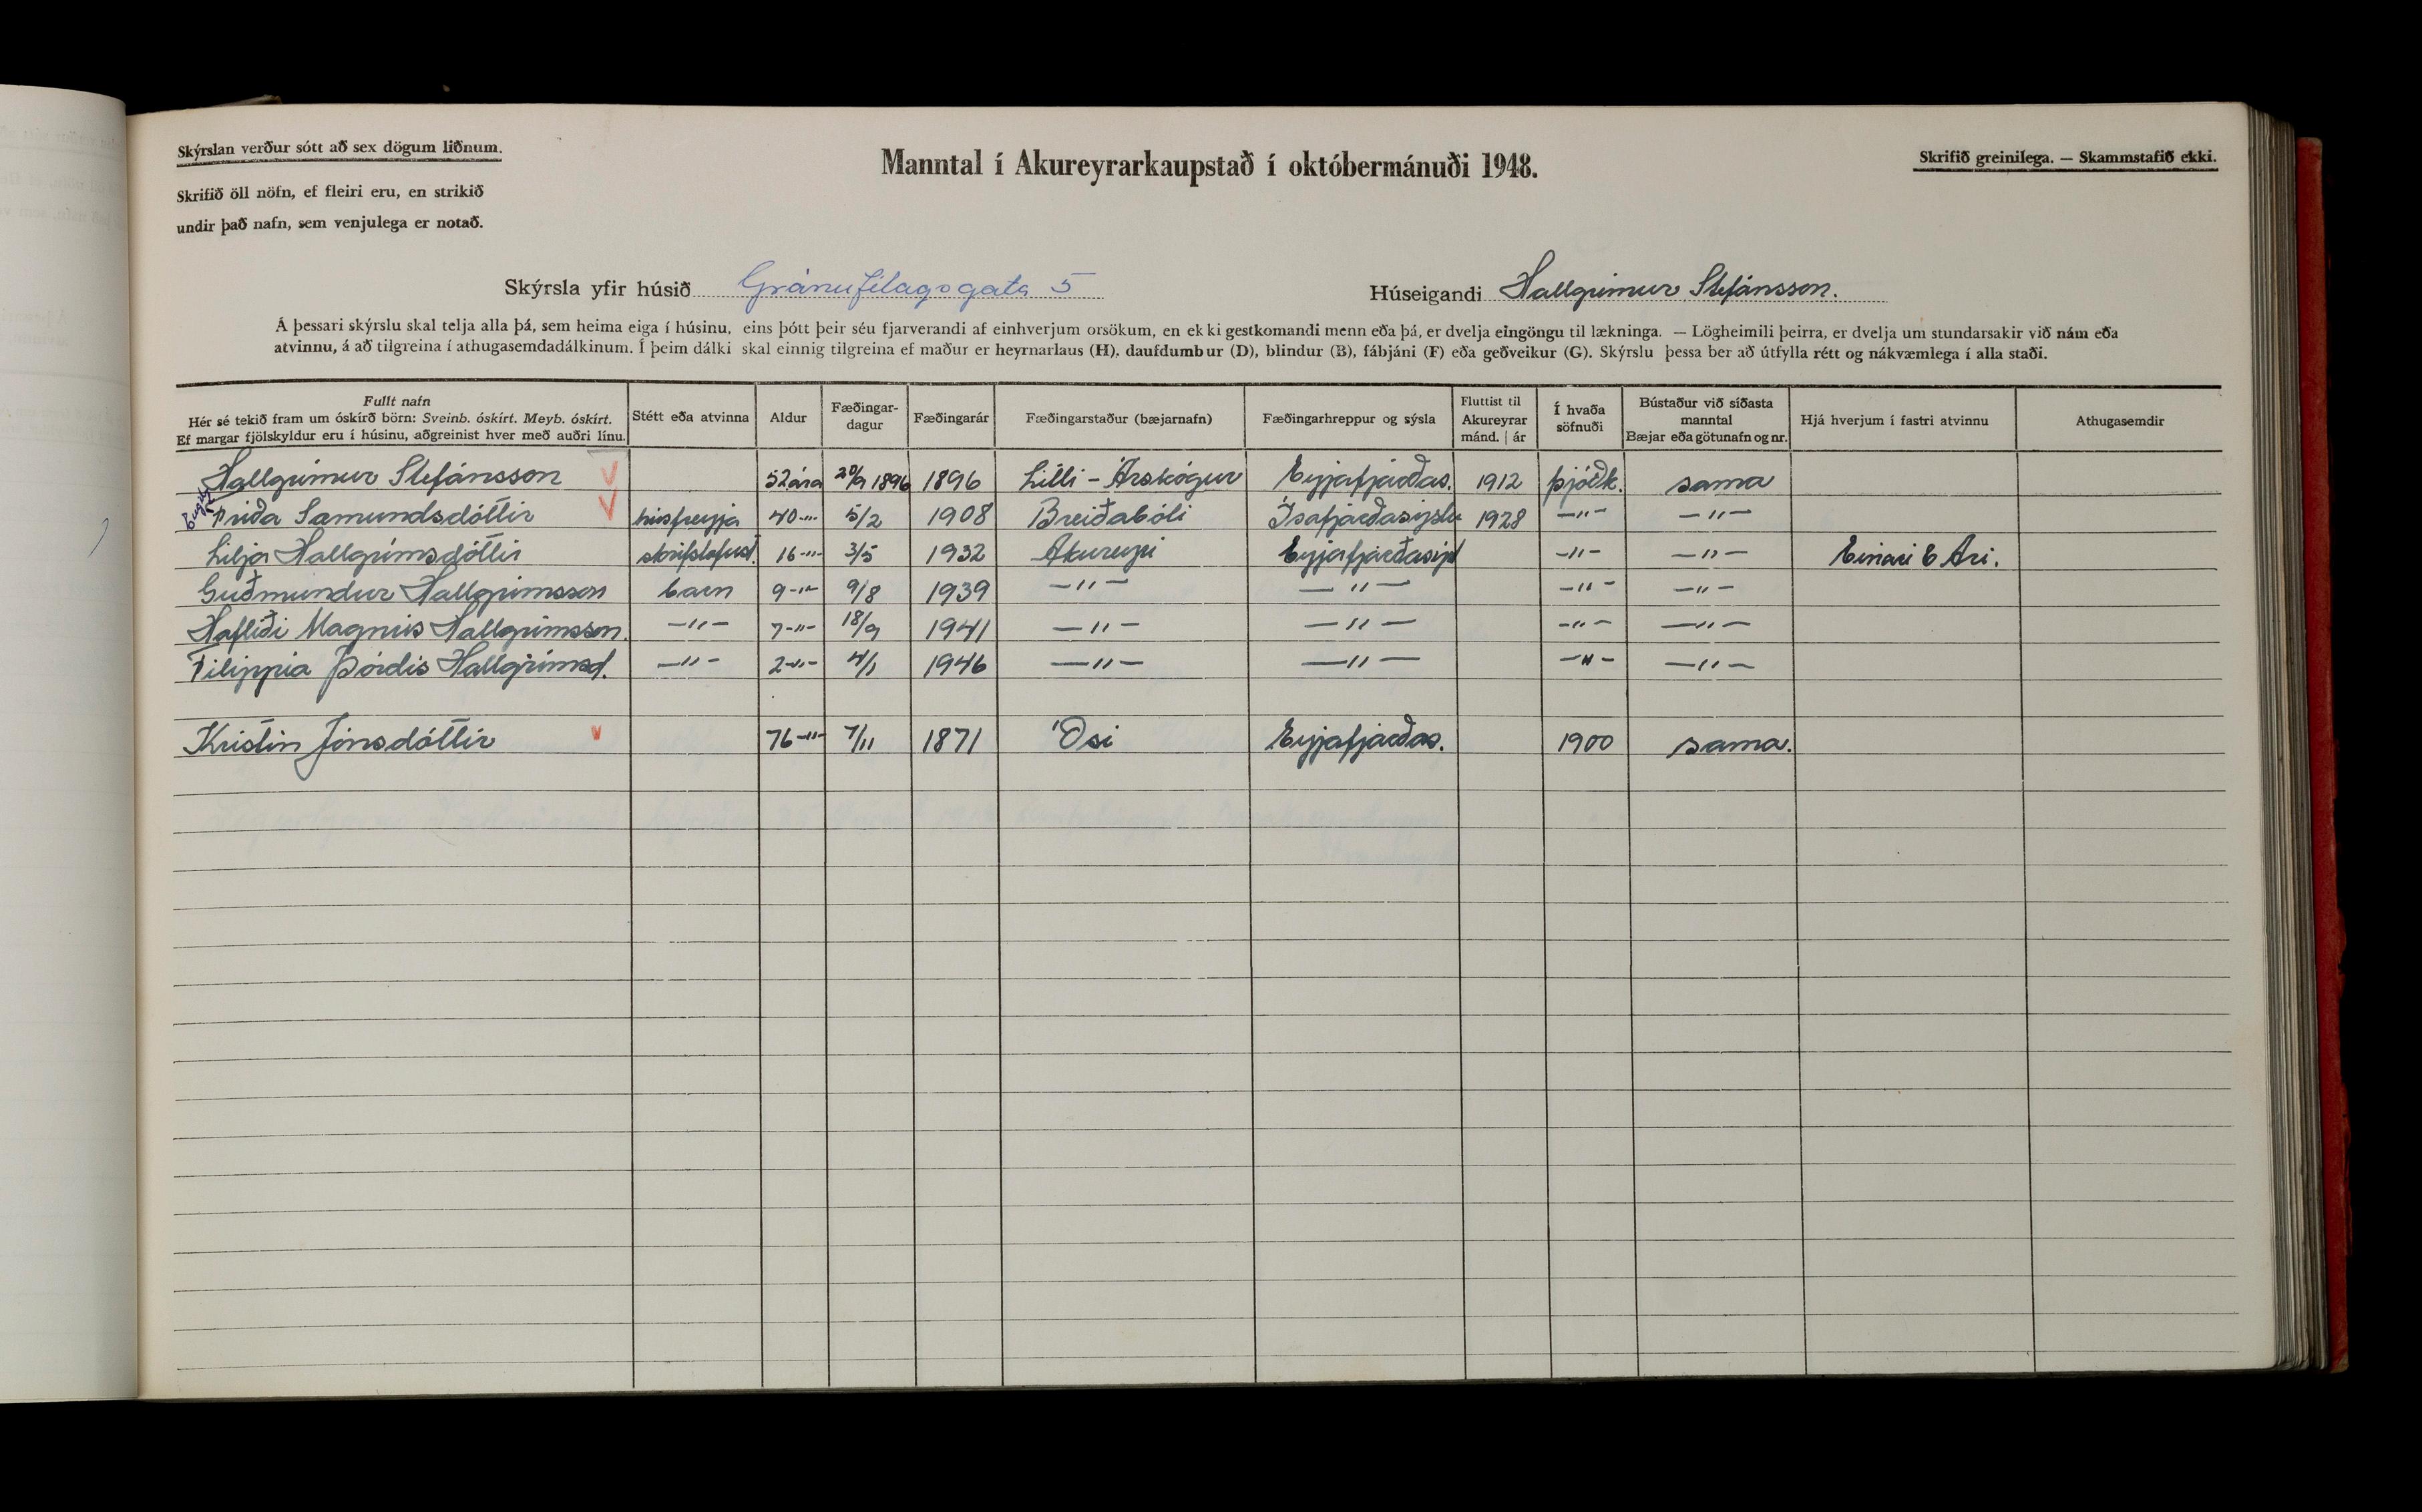 Skýrslan verður sótt að sex dögum liðnum.
Skrifið öll nöfn, ef fleiri eru, en strikið
undir það nafn, sem venjulega er notað.
Manntal í Akureyrarkaupstað í októbermánuði 1948.
Skrifið greinilega. — Skammstafið ekki.
Skýrsla yfir húsið Gránufélagsgata 5
Húseigandi Hallgrímur Stefánsson.
Á þessari skýrslu skal telja alla þá, sem heima eiga í húsinu, eins þótt þeir séu fjarverandi af einhverjum orsökum, en ekki gestkomandi menn eða þá, er dvelja eingöngu til lækninga. — Lögheimili þeirra, er dvelja um stundarsakir við nám eða
atvinnu, á að tilgreina í athugasemdadálkinum. Í þeim dálki skal einnig tilgreina ef maður er heyrnarlaus (H), daufdumbur (D), blindur (B), fábjáni (F) eða geðveikur (G). Skýrslu þessa ber að útfylla rétt og nákvæmlega í alla staði.
Fullt nafn
Hér sé tekið fram um óskírð börn: Sveinb. óskírt. Meyb. óskírt.
Ef margar fjölskyldur eru í húsinu, aðgreinist hver með auðri línu.
Stétt eða atvinna
Aldur
Fæðingar-
dagur
Fæðingarár
Fæðingarstaður (bæjarnafn)
Fæðingarhreppur og sýsla
Fluttist til
Akureyrar
mánd. | ár
Í hvaða
söfnuði
Bústaður við síðasta
manntal
Bæjar eða götunafn og nr.
Hjá hverjum í fastri atvinnu
Athugasemdir
Hallgrímur Stefánsson V 52 ára 20/9 1896 1896 Litli-Árskógur Eyjafjarðas. 1912 þjóðk. sama
Fríða Sæmundsdóttir V húsfreyja 40 -"- 5/2 1908 Breiðabóli Ísafjarðasýslu 1928 -"- -"-
Lilja Hallgrímsdóttir skrifstofust. 16 -"- 3/5 1932 Akureyri Eyjafjarðasýsl -"- -"- Einari & Ari.
Guðmundur Hallgrímsson barn 9 -"- 9/8 1939 -"- -"- -"- -"-
Hafliði Magnús Hallgrímsson. -"- 7 -"- 18/9 1941 -"- -"- -"- -"-
Filippia Þórdís Hallgrímsd. -"- 2 -"- 4/1 1946 -"- -"- -"- -"-
Kristín Jónsdóttir v 76 -"- 7/11 1871 Ósi Eyjafjarðas. 1900 sama.